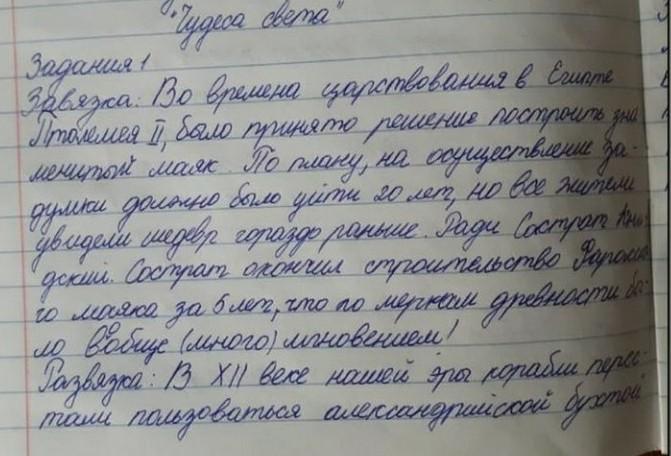 "Чудеса света"
Задания 1
Завязка: Во времена царствования в Египте
Птолемея II, было принято решение построить зна
менитый маяк. По плану, на осуществление за-
думки должно было уйти 20 лет, но все жители
увидели шедевр гораздо раньше. Ради Сострат
дский. Сострат окончил строительство
го маяка за 5 лет, что по меркам древности бы-
ло вообще (много) мгновением!
Развязка: В XII веке нашей эры корабли перес-
тали пользоваться александрийской бухтой